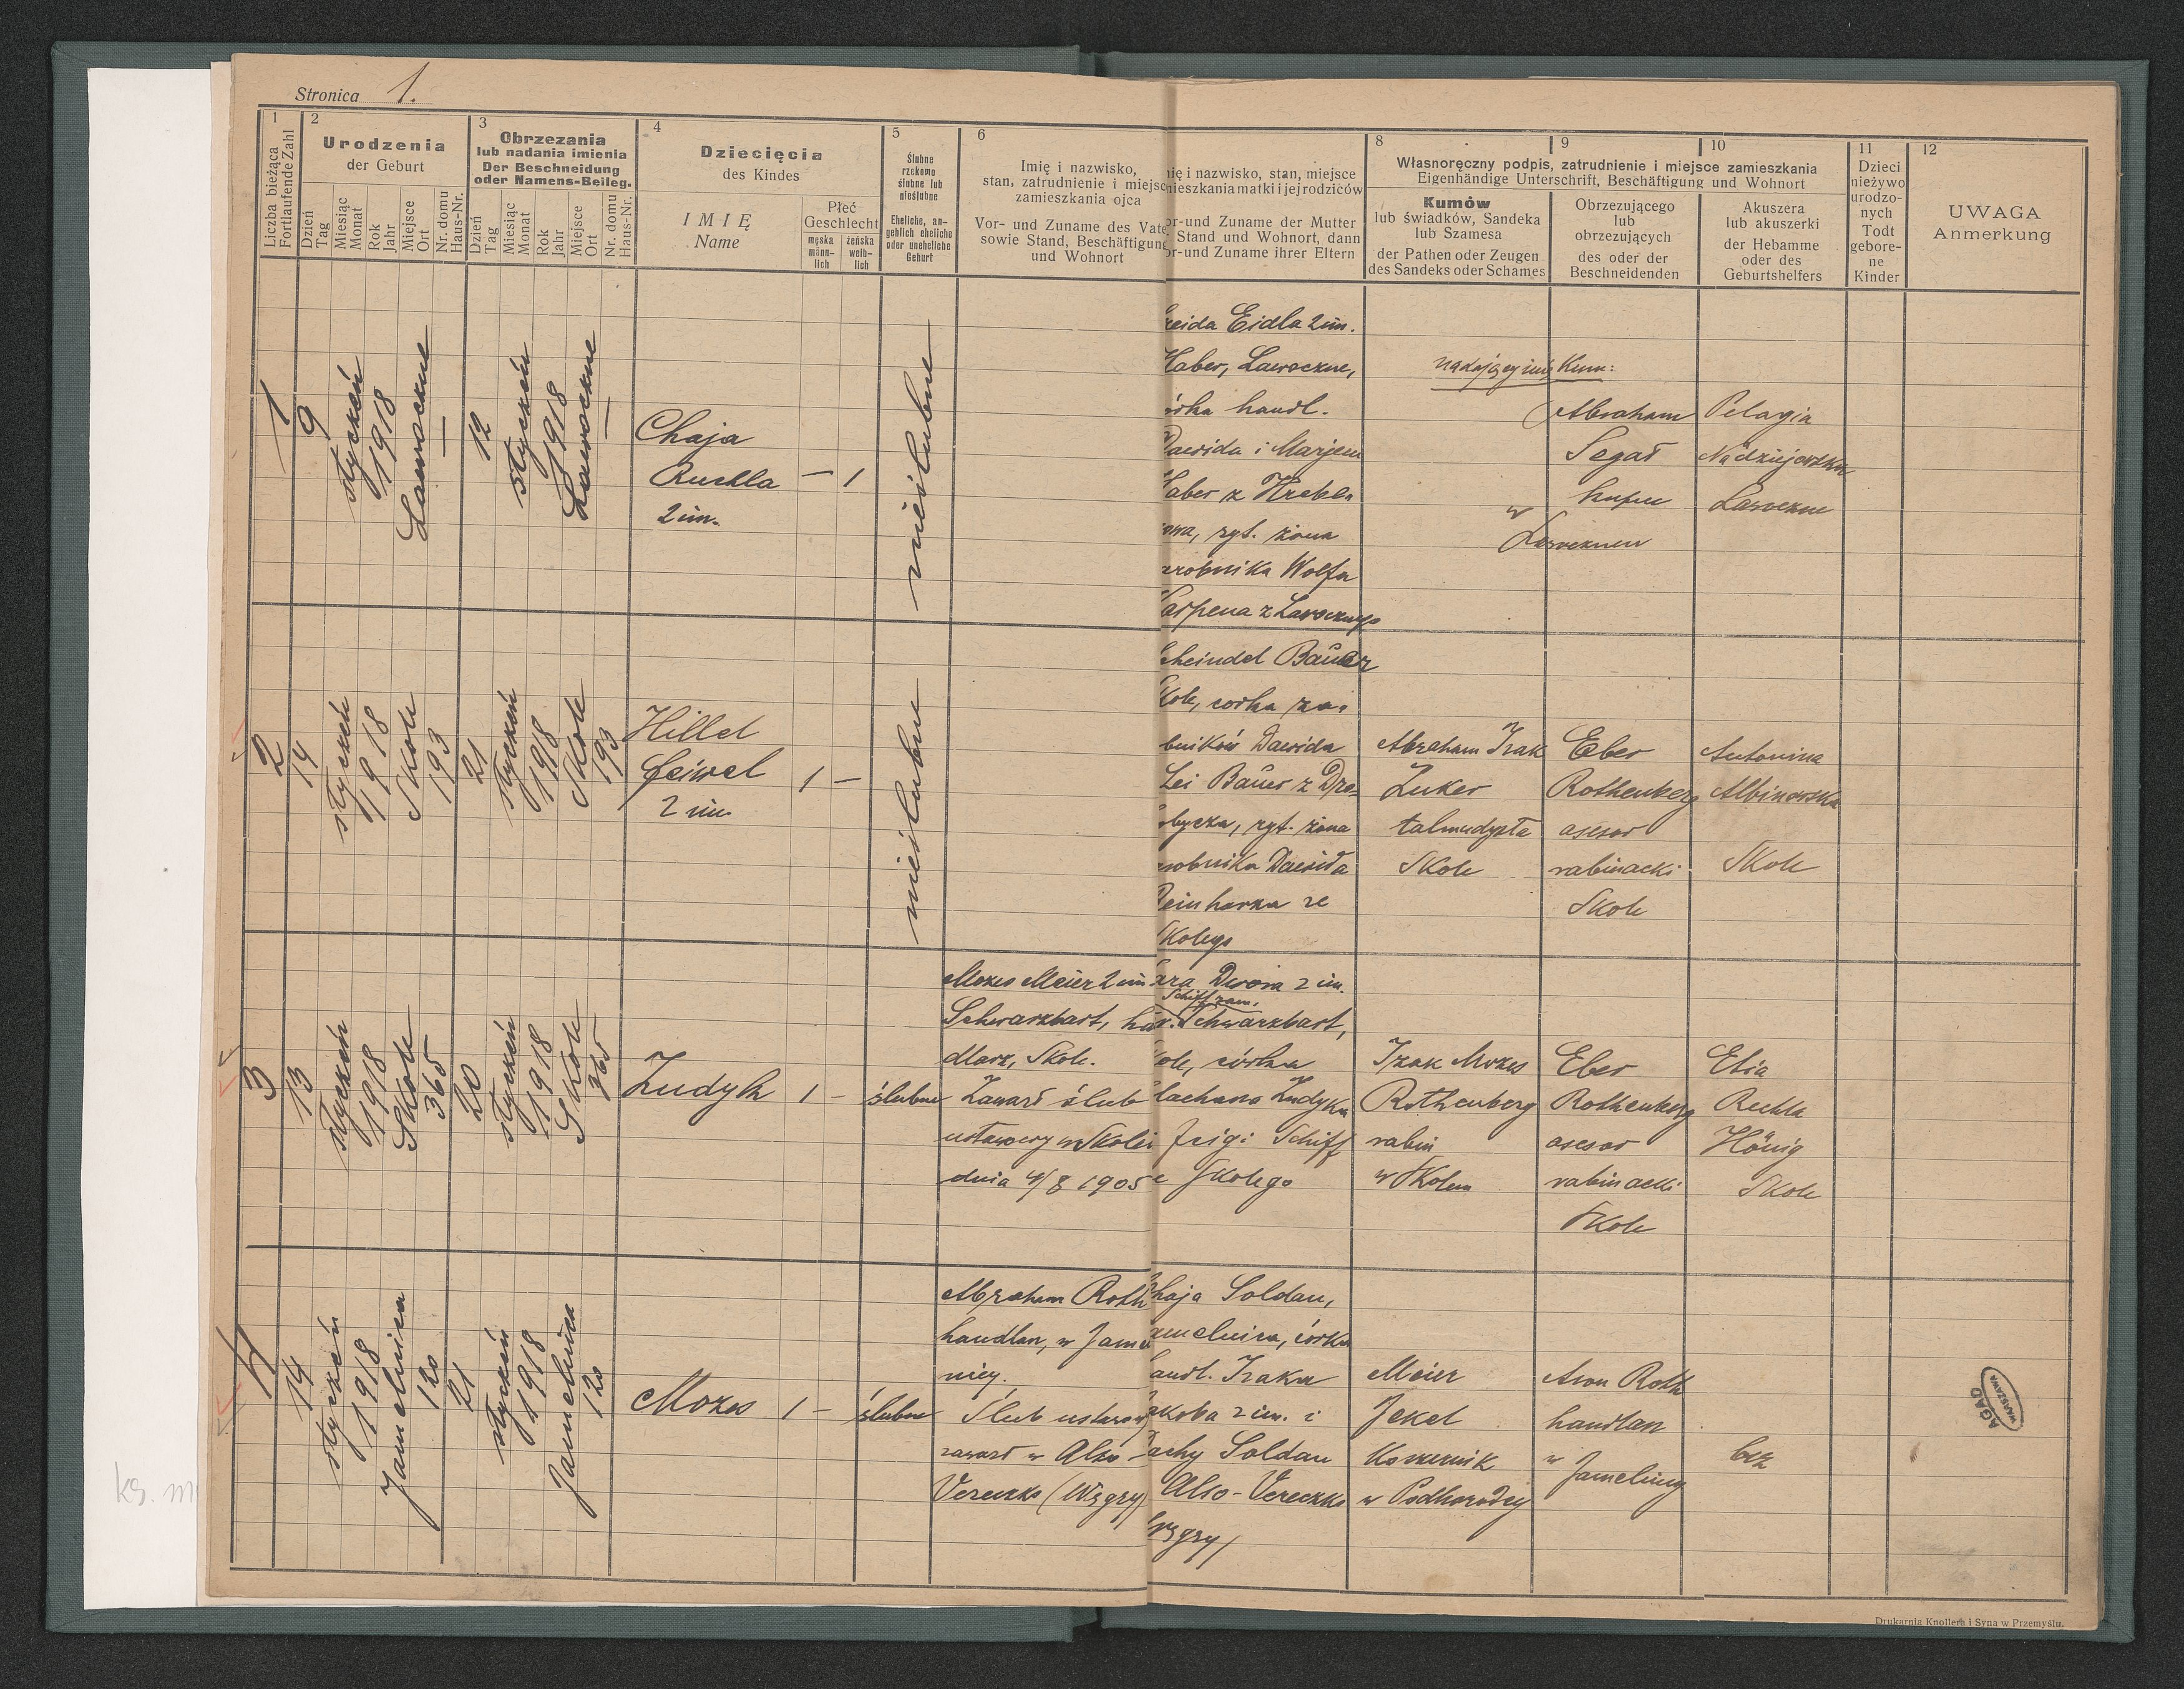 Stronica 1.
1
Liczba bieżąca
Fortlaufende Zahl
2
Urodzenia
der Geburt
Dzień
Tag
Miesiąc
Monat
Rok
Jahr
Miejsce
Ort
Nr. domu
Haus-Nr.
3
Obrzezania
lub nadania imienia
Der Beschneidung
oder Namens-Beileg.
Dzień
Tag
Miesiąc
Monat
Rok
Jahr
Miejsce
Ort
Nr. domu
Haus-Nr.
4
Dziecięcia
des Kindes
IMIĘ
Name
Płeć
Geschlecht
męska
männ-
lich
żeńska
weib-
lich
5
Ślubne
rzekomo
ślubne lub
nieślubne
Eheliche, an-
geblich eheliche
oder uneheliche
Geburt
6
Imię i nazwisko,
stan, zatrudnienie i miejsc
zamieszkania ojca
Vor- und Zuname des Vate
sowie Stand, Beschäftigung
und Wohnort
nię i nazwisko, stan, miejsce
nieszkania matki i jej rodziców
or-und Zuname der Mutter
Stand und Wohnort, dann
or-und Zuname ihrer Eltern
8
9
10
Własnoręczny podpis, zatrudnienie i miejsce zamieszkania
Eigenhändige Unterschrift, Beschäftigung und Wohnort
Kumów
lub świadków, Sandeka
lub Szamesa
der Pathen oder Zeugen
des Sandeks oder Schames
Obrzezującego
lub
obrzezujących
des oder der
Beschneidenden
Akuszera
lub akuszerki
der Hebamme
oder des
Geburtshelfers
11
Dzieci
nieżywo
urodzo-
nych
Todt
gebore-
ne
Kinder
12
UWAGA
Anmerkung
1
9
styczeń
1918
Ławoczne
—
12
styczeń
1918
Ławoczne
—
Chaja
Ruchla
2 im.
— 1
nieślubne
reida Eidla 2 im.
Haber, Ławoczne,
órka handl.
Dawida i Marjem
Haber z Hrebe
owa, ryt. żona
arobnika Wolfa
Karpena z Ławocznego
nadający imię Kum:
Abraham
Segał
kupiec
w
Ławocznem
Pelagia
Nadziejowska
Ławoczne
2
14
styczeń
1918
Skole
193
21
styczeń
1918
Skole
193
Hillel
Feiwel
2 im.
1 —
nieślubne
Scheindel Bauer
Skole, córka za-
bników Dawida
Lei Bauer z Dro-
obycza, ryt. żona
arobnika Dawida
Reinharza ze
Skolego
Abraham Izak
Zuker
talmudysta
Skole
Eber
Rothenberg
asesor
rabinacki
Skole
Antonina
Albinowska
Skole
3
13
styczeń
1918
Skole
365
20
styczeń
1918
Skole
365
Zudyk
1 —
ślubne
Mozes Meier 2 im
Schwarzbart, han
dlarz, Skole.
Zawarł ślub
ustawowy w Skolem
dnia 4/8 1905
ara Dwora 2 im.
Schiff zam.
Schwarzbart,
kole, córka
lachana Zudyka
Feigi Schiff
e Skolego
Izak Mozes
Rothenberg
rabin
w Skolem
Eber
Rothenberg
asesor
rabinacki
Skole
Etia
Rechla
Hönig
Skole
4
14
styczeń
1918
Jamelnica
120
21
styczeń
1918
Jamelnica
120
Mozes
1 —
ślubne
Abraham Roth
handlarz, w Jamel
nicy.
Ślub ustawowy
zawarł w Also
Vereczke (Węgry)
haja Soldan,
amelnica, córka
andl. Izaka
akoba 2 im. i
achy Soldan
Also-Vereczke
węgry/
Meier
Jekel
Koszernik
w Podhorodcy
Aron Roth
handlarz
w Jamelnicy
bez
AGAD
WARSZAWA
Drukarnia Knollera i Syna w Przemyślu.